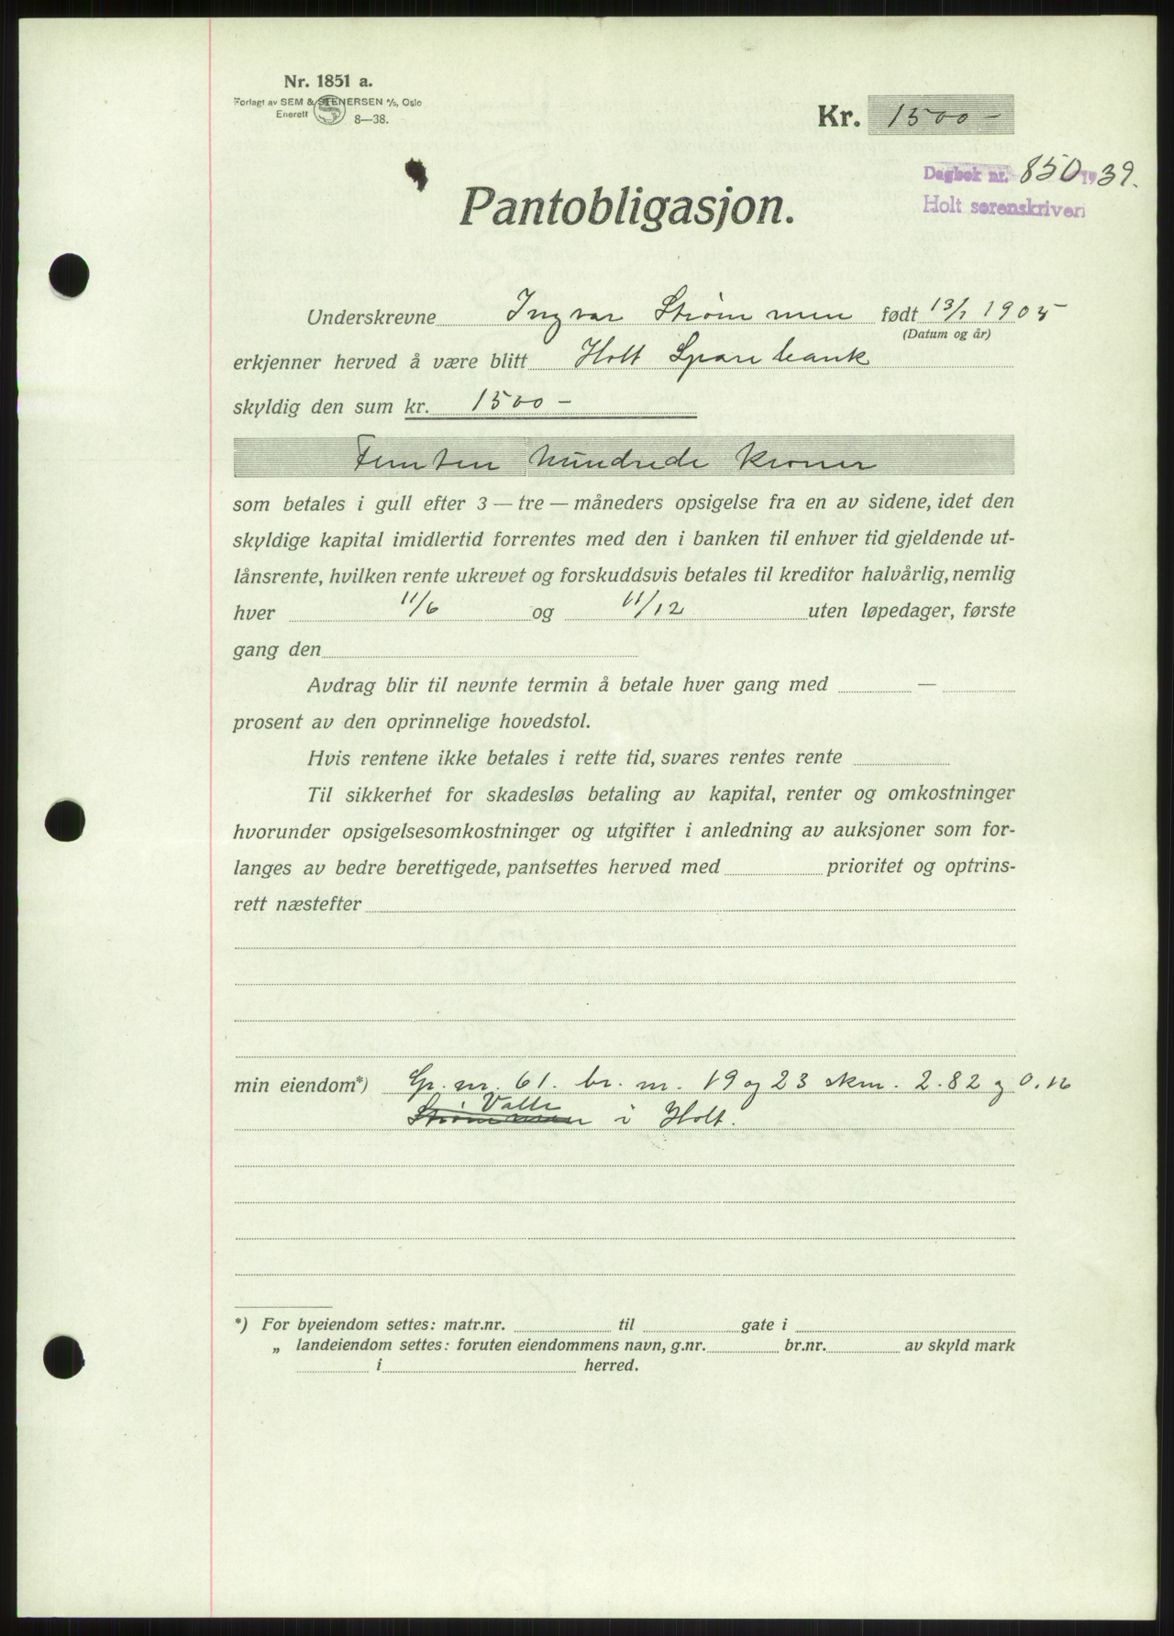 Nr. 1851 a.
Forlagt av SEM & STENERSEN A/S, Oslo
Enerett 8—38.
Kr. 1500 -
Dagbok nr. 850 1939.
Holt sørenskriveri
Pantobligasjon.
Underskrevne Ingvar Strømmen født 13/1 1905
(Datum og år)
erkjenner herved å være blitt Holt Sparebank
skyldig den sum kr. 1500 -
Femten hundrede kroner
som betales i gull efter 3 — tre — måneders opsigelse fra en av sidene, idet den
skyldige kapital imidlertid forrentes med den i banken til enhver tid gjeldende ut-
lånsrente, hvilken rente ukrevet og forskuddsvis betales til kreditor halvårlig, nemlig
hver 11/6 og 11/12 uten løpedager, første
gang den
Avdrag blir til nevnte termin å betale hver gang med —
prosent av den oprinnelige hovedstol.
Hvis rentene ikke betales i rette tid, svares rentes rente
Til sikkerhet for skadesløs betaling av kapital, renter og omkostninger
hvorunder opsigelsesomkostninger og utgifter i anledning av auksjoner som for-
langes av bedre berettigede, pantsettes herved med prioritet og optrins-
rett næstefter
min eiendom*) Gr. nr. 61. br. nr. 19 og 23 skm. 2.82 og 0.16
Strømmen Valle i Holt.
*) For byeiendom settes: matr.nr. til gate i
„ landeiendom settes: foruten eiendommens navn, g.nr. br.nr. av skyld mark
i herred.